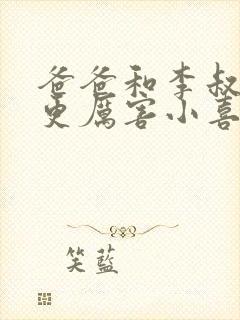 爸爸和李叔
更厉害小喜
笑蓝